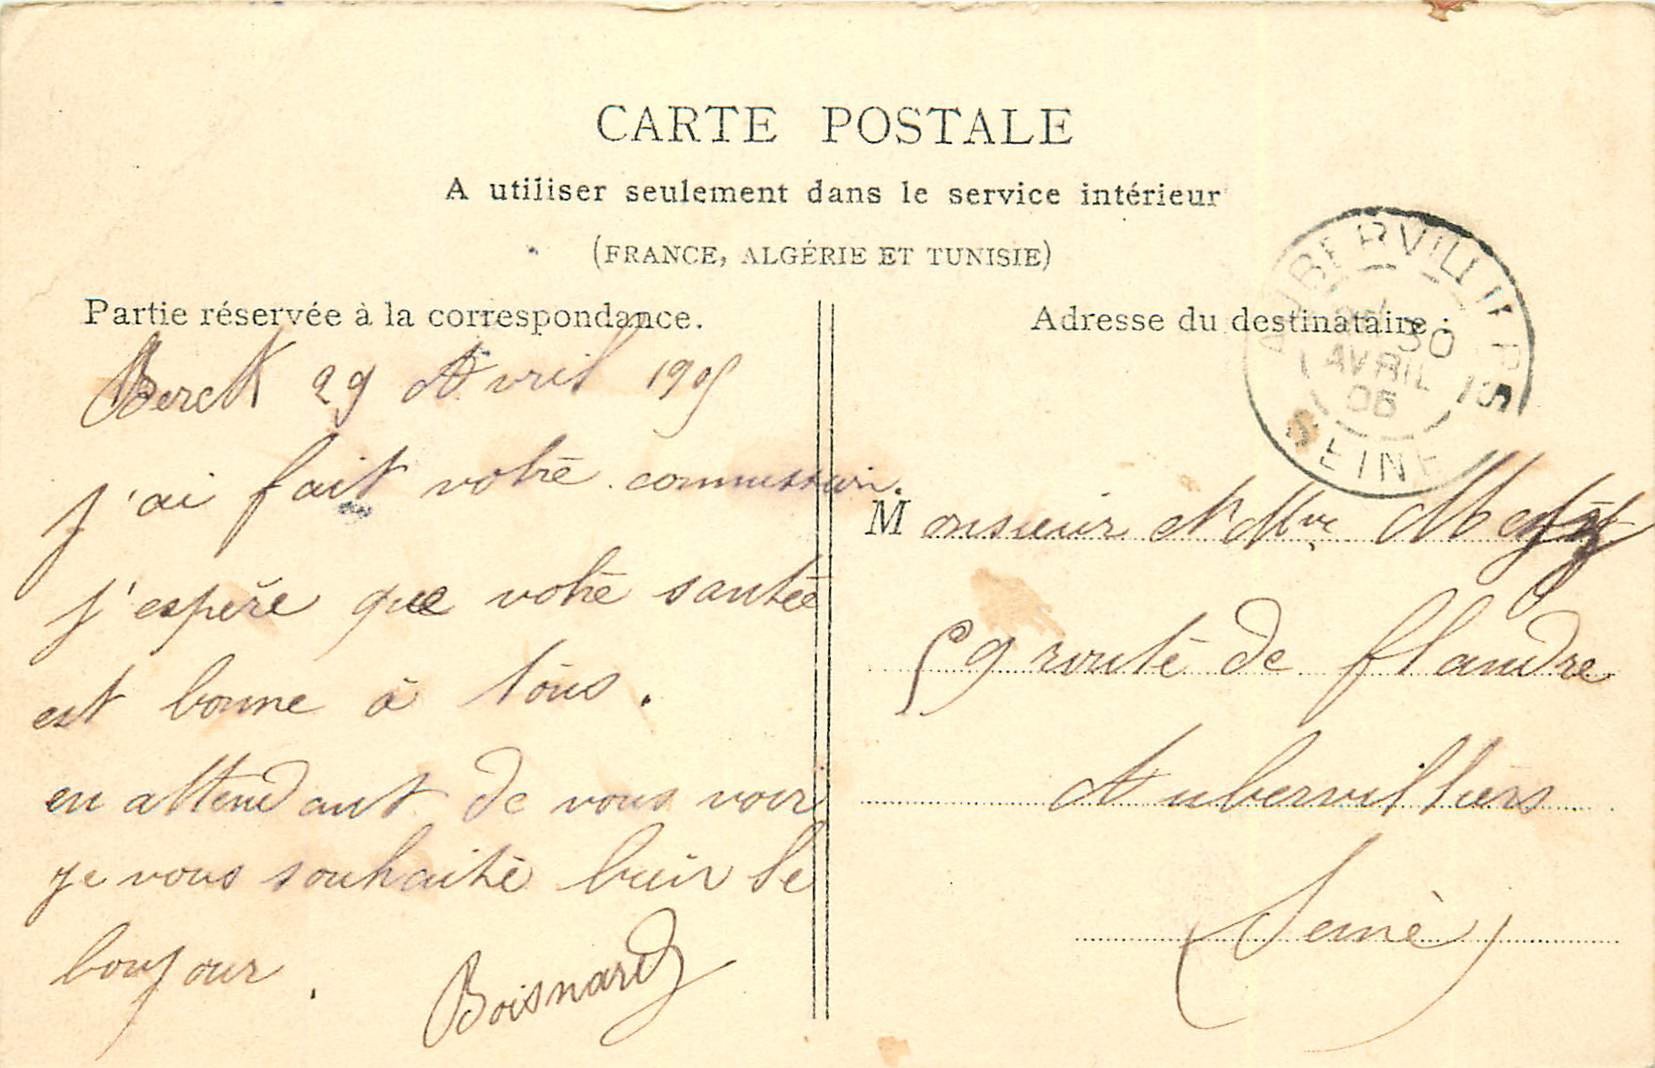 CARTE POSTALE
A utiliser seulement dans le service intérieur
(FRANCE, ALGÉRIE ET TUNISIE)
Partie réservée à la correspondance.
Berck 29 Avril 1905
j'ai fait votre commission.
j'espère que votre santée
est bonne à tous.
en attendant de vous voir
je vous souhaite bien le
bonjour.
Boisnard
Adresse du destinataire :
AUBERVILLIERS
30
AVRIL
05
SEINE
Monsieur et Mme
59 route de flandre
Aubervilliers
(Seine)